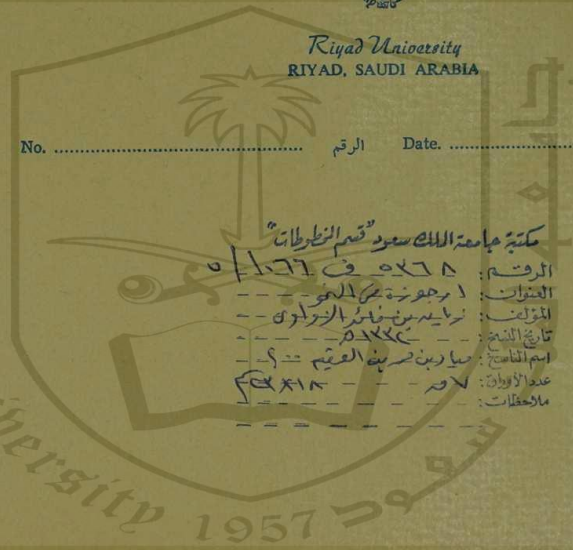 Riyad University
RIYAD, SAUDI ARABIA
No. .......... الرقم Date. ..........
مكتبة جامعة الملك سعود "قسم المخطوطات"
الرقم: ٥٣٦٨ ف ١٠٦٦ / ٥
العنوان: ارجوزة في النحو
المؤلف: بن فائد الزواوي
تاريخ النسخ: ١٣٣٢هـ
اسم الناسخ: بن
عدد الأوراق: ٧ق
ملاحظات:
University 1957
سعود